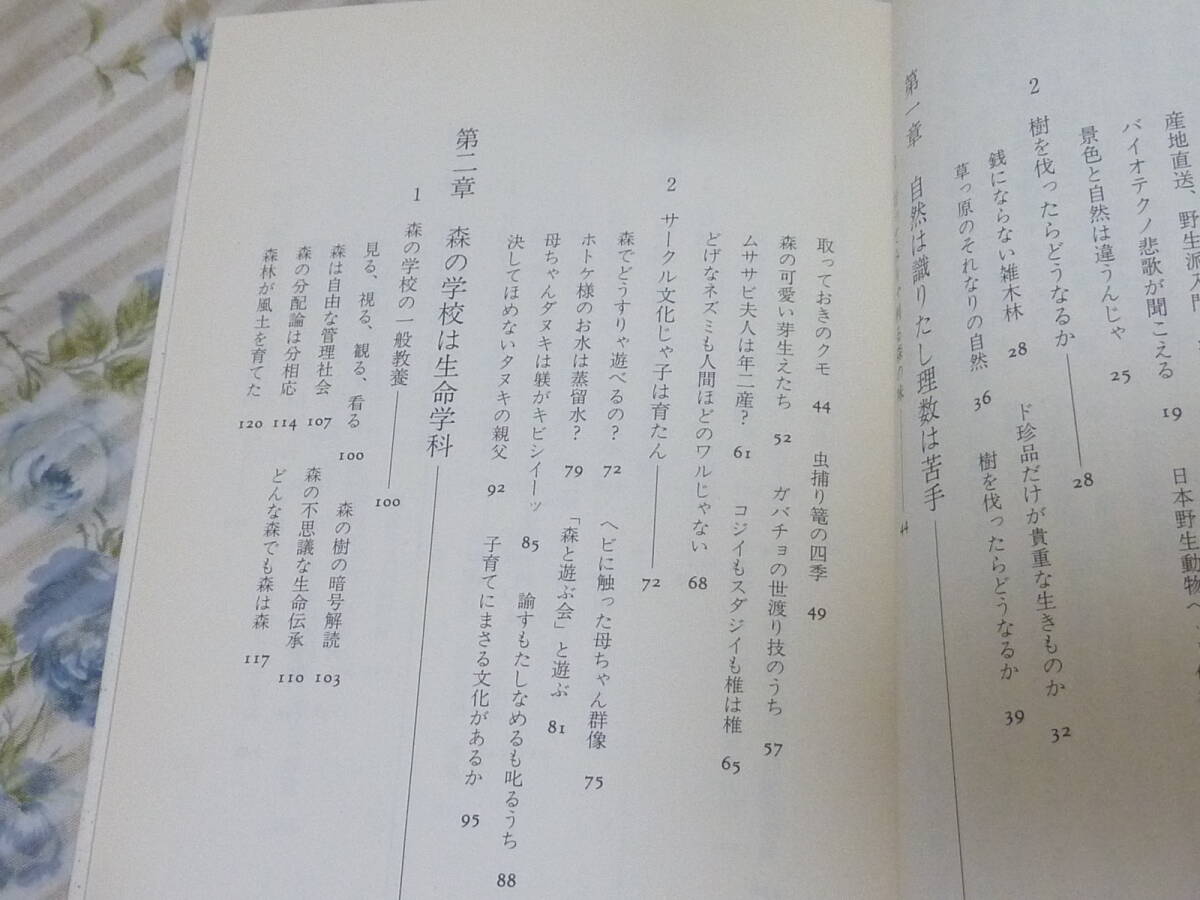 産地直送、野生派
バイオテクノ悲歌が聞こえる 19 日本野生動物
景色と自然は違うんじゃ 25
2 樹を伐ったらどうなるか 28
銭にならない雑木林 28 ド珍品だけが貴重な生きものか 32
草っ原のそれなりの自然 36 樹を伐ったらどうなるか 39
第一章 自然は識りたし理数は苦手
44
取っておきのクモ 44 虫捕り篭の四季 49
森の可愛い芽生えたち 52 ガバチョの世渡り技のうち 57
ムササビ夫人は年二産? 61 コジイもスダジイも椎は椎 65
どげなネズミも人間ほどのワルじゃない 68
2 サークル文化じゃ子は育たん 72
森でどうすりゃ遊べるの? 72 ヘビに触った母ちゃん群像 75
ホトケ様のお水は蒸留水? 79 「森と遊ぶ会」と遊ぶ 81
母ちゃんダヌキは躾がキビシイーッ 85 諭すもたしなめるも叱るうち 88
決してほめないタヌキの親父 92 子育てにまさる文化があるか 95
第二章 森の学校は生命学科
1 森の学校の一般教養 100
見る、視る、観る、看る 100 森の樹の暗号解読 103
森は自由な管理社会 107 森の不思議な生命伝承 110
森の分配論は分相応 114 どんな森でも森は森 117
森林が風土を育てた 120